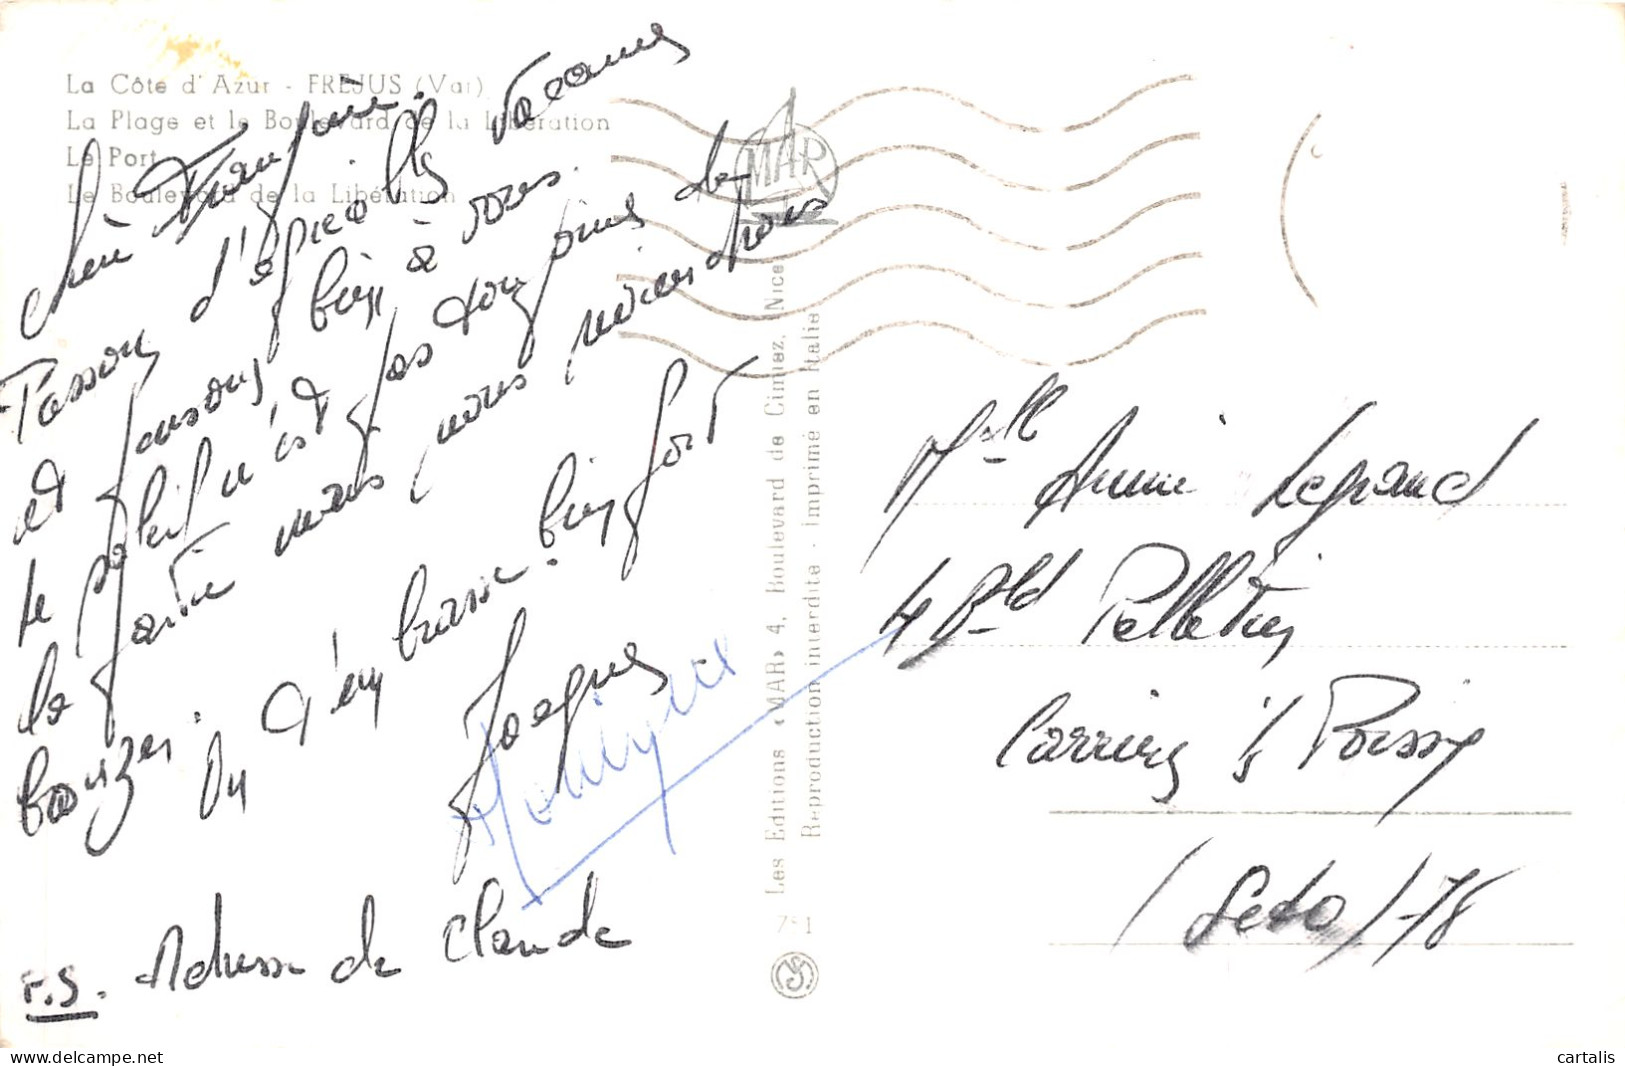 La Côte d'Azur - FREJUS (Var)
La Plage et le Boulevard de la Libération
Le Port
Le Boulevard de la Libération
Passons d'agréables vacances
et pensons bien à vous.
le soleil n'est pas toujours de
la partie mais nous nous
bronzer. On t'embrasse bien fort
Jacques
P.S. Adresse de Claude
MAR
Les Editions «MAR» 4, Boulevard de Cimiez, Nice
Reproduction interdite - Imprimé en Italie
781
Melle Annie Legrand
4 Bld Pelletier
Carrières s/s Poissy
(Seto) 78
cartalis
delcampe.net